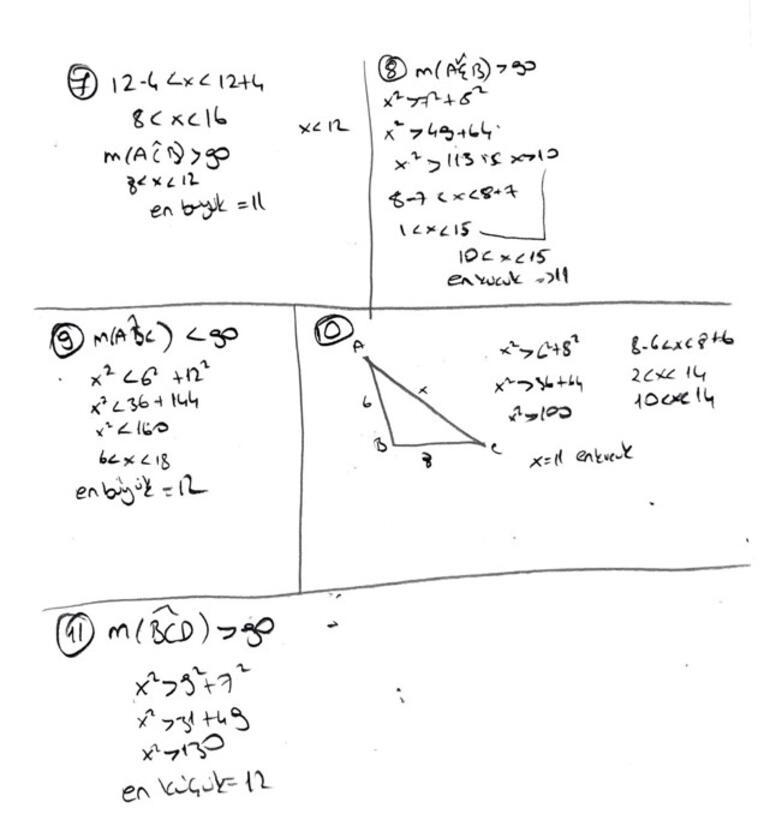 7 12-4 < x < 12+4
8 < x < 16
x < 12
m(AĈB) > 90
8 < x < 12
en büyük = 11
8 m(AĈB) > 90
x² > 7² + 8²
x² > 49 + 64
x² > 113 x > 10
8-7 < x < 8+7
1 < x < 15
10 < x < 15
en küçük => 11
9 m(AB̂C) < 90
x² < 6² + 12²
x² < 36 + 144
x² < 160
6 < x < 18
en büyük = 12
10
A
6
x
B
8
C
x² > 6² + 8²
x² > 36 + 64
x² > 100
8-6 < x < 8+6
2 < x < 14
10 < x < 14
x = 11 en küçük
11 m(BĈD) > 90
x² > 9² + 7²
x² > 31 + 49
x² > 130
en küçük = 12